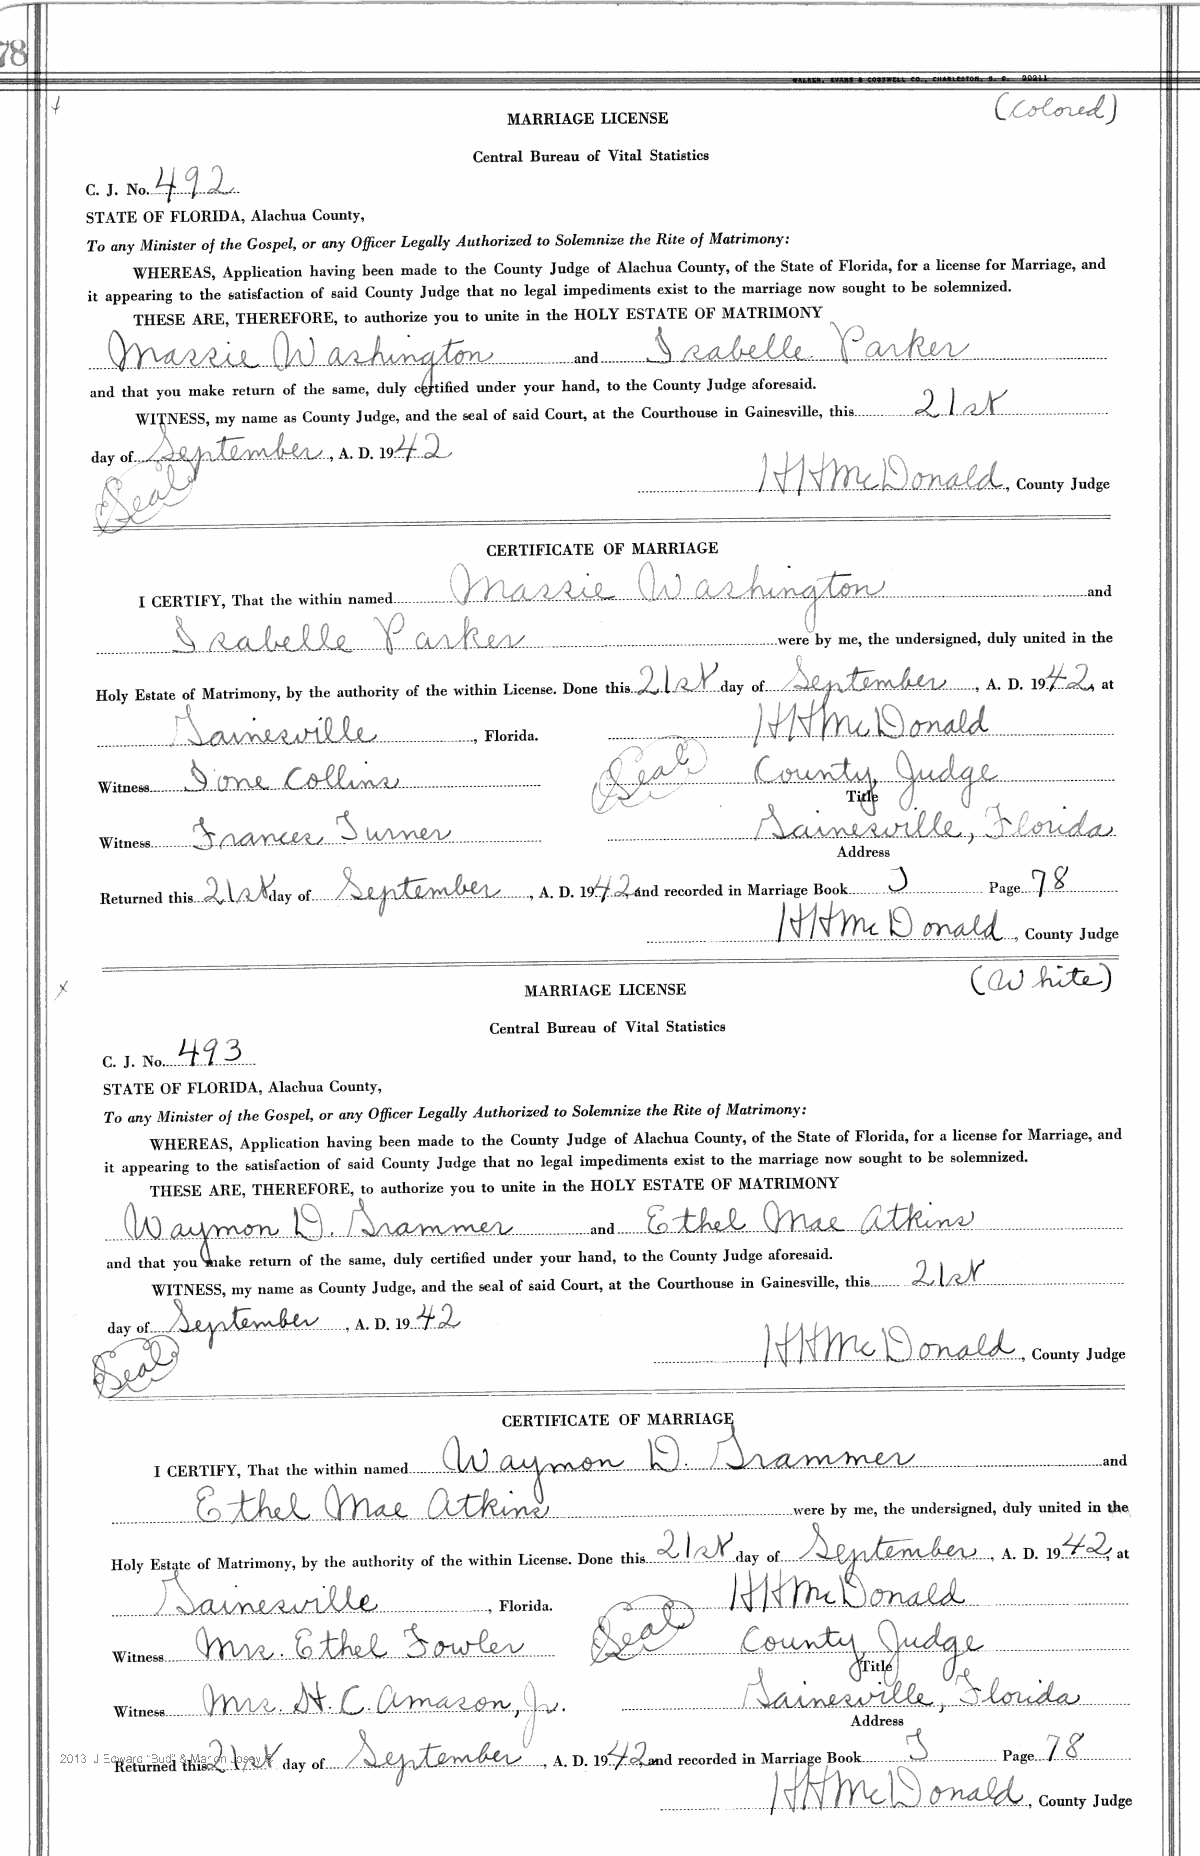 78
WALKER, EVANS & COGSWELL CO., CHARLESTON, S. C. 20211
(Colored)
MARRIAGE LICENSE
Central Bureau of Vital Statistics
C. J. No. 492
STATE OF FLORIDA, Alachua County,
To any Minister of the Gospel, or any Officer Legally Authorized to Solemnize the Rite of Matrimony:
WHEREAS, Application having been made to the County Judge of Alachua County, of the State of Florida, for a license for Marriage, and
it appearing to the satisfaction of said County Judge that no legal impediments exist to the marriage now sought to be solemnized.
THESE ARE, THEREFORE, to authorize you to unite in the HOLY ESTATE OF MATRIMONY
Massie Washington and Isabelle Parker
and that you make return of the same, duly certified under your hand, to the County Judge aforesaid.
WITNESS, my name as County Judge, and the seal of said Court, at the Courthouse in Gainesville, this 21st
day of September, A. D. 1942
(Seal) HHMcDonald, County Judge
CERTIFICATE OF MARRIAGE
I CERTIFY, That the within named Massie Washington and
Isabelle Parker were by me, the undersigned, duly united in the
Holy Estate of Matrimony, by the authority of the within License. Done this 21st day of September, A. D. 1942, at
Gainesville, Florida. HHMcDonald
Witness Ione Collins (Seal) County Judge
Title
Witness Frances Turner Gainesville, Florida
Address
Returned this 21st day of September, A. D. 1942, and recorded in Marriage Book J Page 78
HHMcDonald, County Judge
(White)
MARRIAGE LICENSE
Central Bureau of Vital Statistics
C. J. No. 493
STATE OF FLORIDA, Alachua County,
To any Minister of the Gospel, or any Officer Legally Authorized to Solemnize the Rite of Matrimony:
WHEREAS, Application having been made to the County Judge of Alachua County, of the State of Florida, for a license for Marriage, and
it appearing to the satisfaction of said County Judge that no legal impediments exist to the marriage now sought to be solemnized.
THESE ARE, THEREFORE, to authorize you to unite in the HOLY ESTATE OF MATRIMONY
Waymon D. Grammer and Ethel Mae Atkins
and that you make return of the same, duly certified under your hand, to the County Judge aforesaid.
WITNESS, my name as County Judge, and the seal of said Court, at the Courthouse in Gainesville, this 21st
day of September, A. D. 1942
(Seal) HHMcDonald, County Judge
CERTIFICATE OF MARRIAGE
I CERTIFY, That the within named Waymon D. Grammer and
Ethel Mae Atkins were by me, the undersigned, duly united in the
Holy Estate of Matrimony, by the authority of the within License. Done this 21st day of September, A. D. 1942, at
Gainesville, Florida. HHMcDonald
Witness Mrs. Ethel Fowler (Seal) County Judge
Title
Witness Mrs. H. C. Amason, Jr. Gainesville, Florida
Address
2013 J Edward "Bud" & Marion Josey
Returned this 21st day of September, A. D. 1942, and recorded in Marriage Book J Page 78
HHMcDonald, County Judge